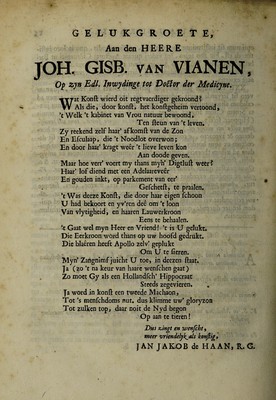 GELUKGROETE,
Aan den HEERE
JOH. GISB. VAN VIANEN,
Op zyn Edl. Inwydinge tot Doctor der Medicyne.
Wat Konst wierd oit regtvaerdiger gekroond?
Als die, door konst, het konstgeheim vertoond,
't Welk 't kabinet van Vrou natuur bewoond,
Ten steun van 't leven.
Zy reekend zelf haar' afkomst van de Zon
En Esculaap, die 't Noodlot overwon;
En door haar' kragt weêr 't lieve leven kon
Aan doode geven.
Maar hoe verr' voert my thans myn' Digtlust weer?
Haar' lof diend met een Adelaarsveêr
En gouden inkt, op parkement van eer'
Geschetst, te praalen.
't Was derze Konst, die door haar eigen schoon
U had bekoort en yv'ren del om 't loon
Van vlytigheid, en haaren Lauwerkroon
Eens te behaalen.
't Gaat wel myn Heer en Vriend! 't is U gelukt.
Die Eerkroon word thans op uw hoofd gedrukt.
Die blaâren heeft Apollo zelv' geplukt
Om U te sieren.
Myn' Zangnimf juicht U toe, in derzen staat.
Ja (zo 't na keur van haare wenschen gaat)
Zo moet Gy als een Hollandsch' Hippocraat
Steeds zegevieren.
Ja word in konst een tweede Machaon,
Tot 's menschdoms nut. dus klimme uw' gloryzon
Tot zulken top, daar noit de Nyd begon
Op aan te tieren!
Dus zingt en wenscht,
meer vriendelyk als konstig,
JAN JAKOB de HAAN, R. G.